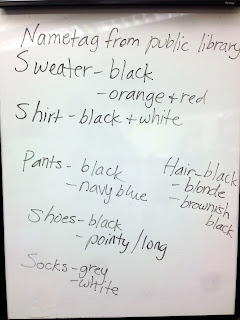 Nametag from public library
Sweater - black
- orange + red
Shirt - black + white
Pants - black
- navy blue
Hair - black
- blonde
- brownish
black
Shoes - black
- pointy / long
Socks - grey
- white